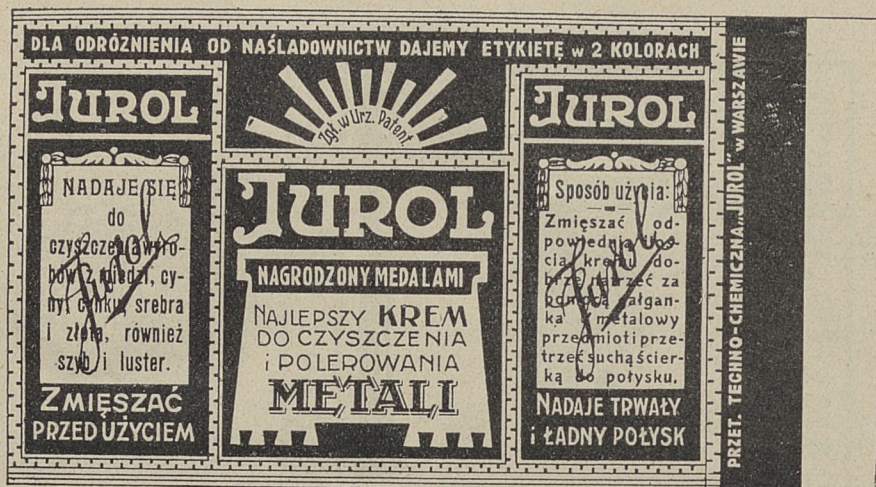 DLA ODRÓŻNIENIA OD NAŚLADOWNICTW DAJEMY ETYKIETĘ w 2 KOLORACH
JUROL
NADAJE SIĘ
do
czyszczenia wyro-
bów z miedzi, cy-
ny, cynku, srebra
i złota, również
szyb i luster.
Jurol
ZMIĘSZAĆ
PRZED UŻYCIEM
Zgł. w Urz. Patent.
JUROL
NAGRODZONY MEDALAMI
NAJLEPSZY KREM
DO CZYSZCZENIA
i POLEROWANIA
METALI
JUROL
Sposób użycia:
Zmięszać od-
powiednią iloś-
cią kremu do-
brze natrzeć za
pomocą gałgan-
ka metalowy
przedmiot i prze-
trzeć suchą ścier-
ką do połysku.
Jurol
NADAJE TRWAŁY
i ŁADNY POŁYSK
PRZET. TECHNO-CHEMICZNA „JUROL" w WARSZAWIE